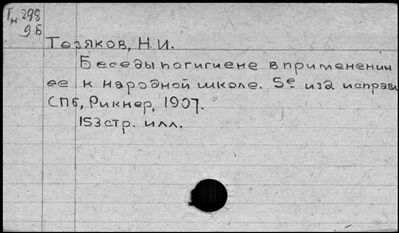 Тн 298
9б
Тезяков, Н.И.
Беседы по гигиене в применении
ее к народной школе. 5е изд. исправ.
СПб, Риккер, 1907.
153 стр. илл.